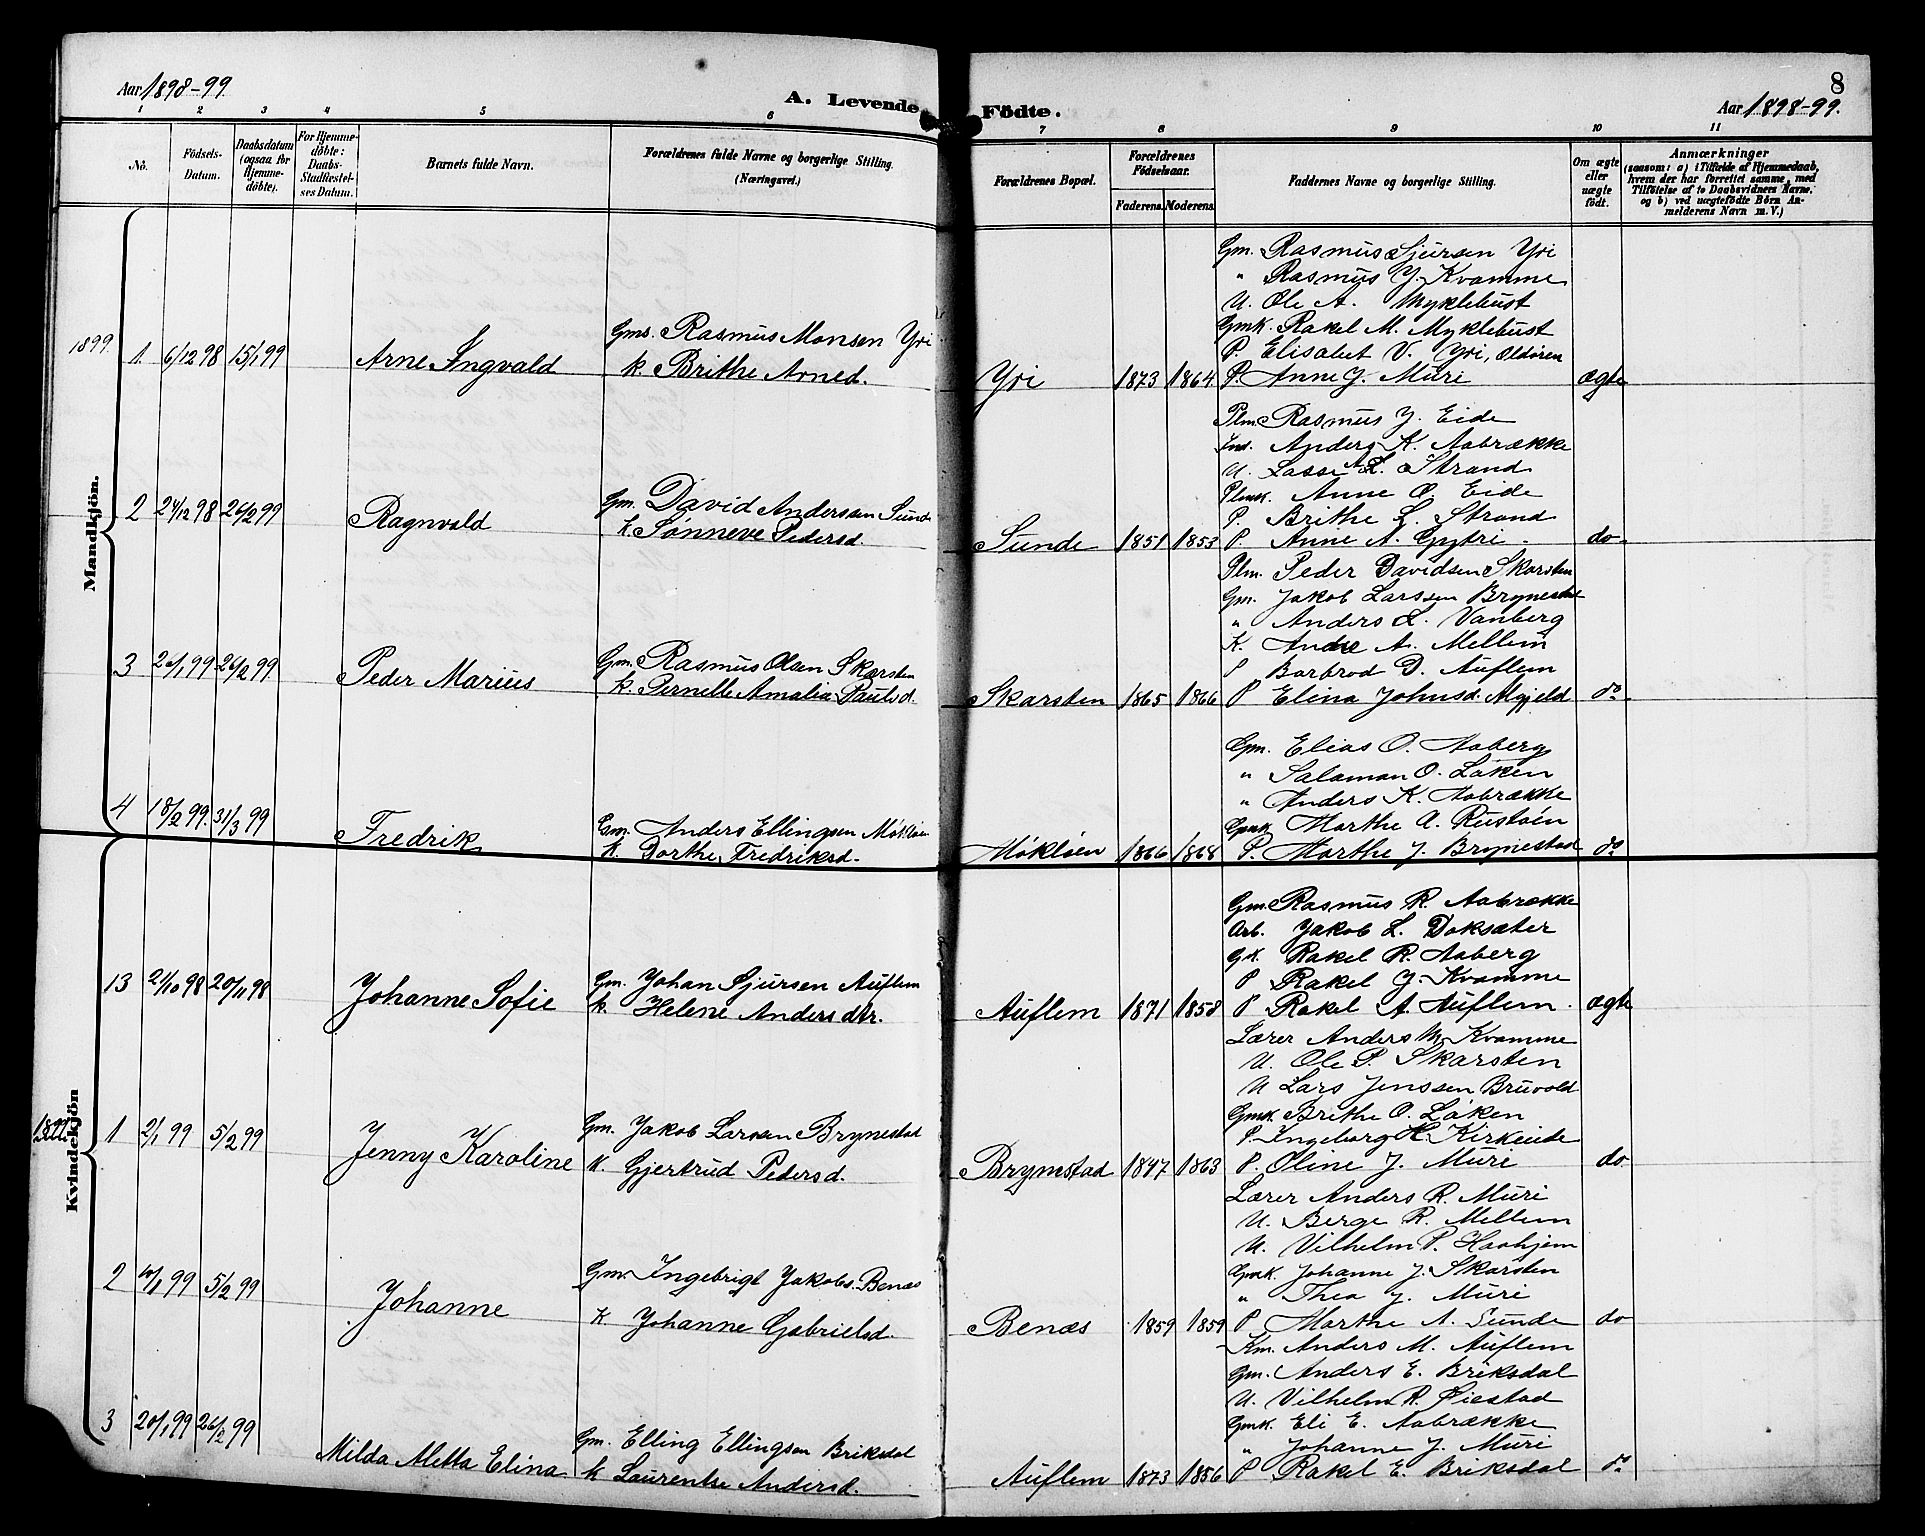 Aar 1898-99.
A. Levende Födte.
8
Aar 1898-99.
1 2 3 4 5 6 7 8 9 10 11
No.
Födsels-Datum.
Daabsdatum (ogsaa for Hjemmedöbte).
For Hjemmedöbte: Daabs-Stadfæstelses Datum.
Barnets fulde Navn.
Forældrenes fulde Navne og borgerlige Stilling. (Næringsvei.)
Forældrenes Bopæl.
Forældrenes Födselsaar.
Faderens. Moderens.
Faddernes Navne og borgerlige Stilling.
Om ægte eller uægte födt.
Anmærkninger
(saasom: a) i Tilfælde af Hjemmedaab, hvem der har forrettet samme, med Tilföielse af to Daabsvidners Navne, og b) ved uægtefödte Börn Anmelderens Navn m. V.)
Mandkjön.
1899.
Gm. Rasmus Sjursen Yri
" Rasmus J. Kvamme
U. Ole A. Myklebust
GmK. Rakel M. Myklebust
P. Elisabet V. Yri, Oldören
1 6/12 98 15/1 99 Arne Ingvald Gms. Rasmus Monsen Yri
K. Brithe Arned. Yri 1873 1864 P. Anne J. Muri ægte
Plm. Rasmus J. Eide
Ind. Anders K. Aabrække
U. Lasse A.L. Strand
PlmK. Anne O. Eide
P. Brithe L. Strand
2 24/12 98 26/2 99 Ragnvald Gm. David Anderssen Sunde
K. Sønneve Pedersd. Sunde 1851 1853 P. Anne A. Gytri do
Plm. Peder Davidsen Skarsten
Gm. Jakob Larssen Brynestad
" Anders L. Vanberg
K. Andre A. Mellem
P Barbrod D. Auflem
3 26/1 99 26/2 99 Peder Marius Gm. Rasmus Olsen Skarsten
K. Pernelle Amalia Paulsd. Skarsten 1865 1866 P Elina Johnsd. Mgjeld do
Gm. Elias O. Aaberg
" Salaman O. Løken
" Anders K. Aabrække
GmK Marthe A. Rustøen
4 18/2 99. 31/3 99 Fredrik Gm. Anders Ellingsen Mökløen
K. Dorthe Fredriksd. Mökløen 1866 1868 P. Marthe J. Brynestad do
Kvindekjön
Gm. Rasmus R. Aabrække
Arb. Jakob L. Doksæter
GK. Rakel R. Aaberg
P Rakel J. Kvamme
13 21/10 98 20/11 98 Johanne Sofie Gm. Johan Sjursen Auflem
K. Helene Anders dtr. Auflem 1871 1858 P Rakel A. Auflem. ægte
Lærer Anders M. Kvamme
U. Ole P. Skarsten
U Lars Jenssen Bruvold
GmK. Brithe O. Løken
P. Ingeborg H. Kirkeide
1899 1 2/1 99 5/2 99 Jenny Karoline Gm. Jakob Larssen Brynestad
K. Gjertrud Pedersd. Brynestad 1847 1863 P. Oline J. Muri do
Lærer Anders R. Muri
U. Berge R. Mellem
U. Vilhelm P. Haahjem
GmK. Johanne J. Skarsten
" Thea J. Muri
2 10/1 99 5/2 99 Johanne Gm. Ingebrigt Jakobs. Benæs
K Johanne Gabrielsd. Benæs 1859 1859 P Marthe A. Sunde do
Km. Anders M. Auflem
Gm. Anders E. Briksdal
U. Vilhelm R. Øiestad
GmK Eli E. Aabrække
" Johanne J. Muri
3 20/1 99 26/2 99 Milda Metta Elina Gm. Elling Ellingsen Briksdal
K Laurentse Andersd. Auflem 1873 1856 P Rakel E. Briksdal do